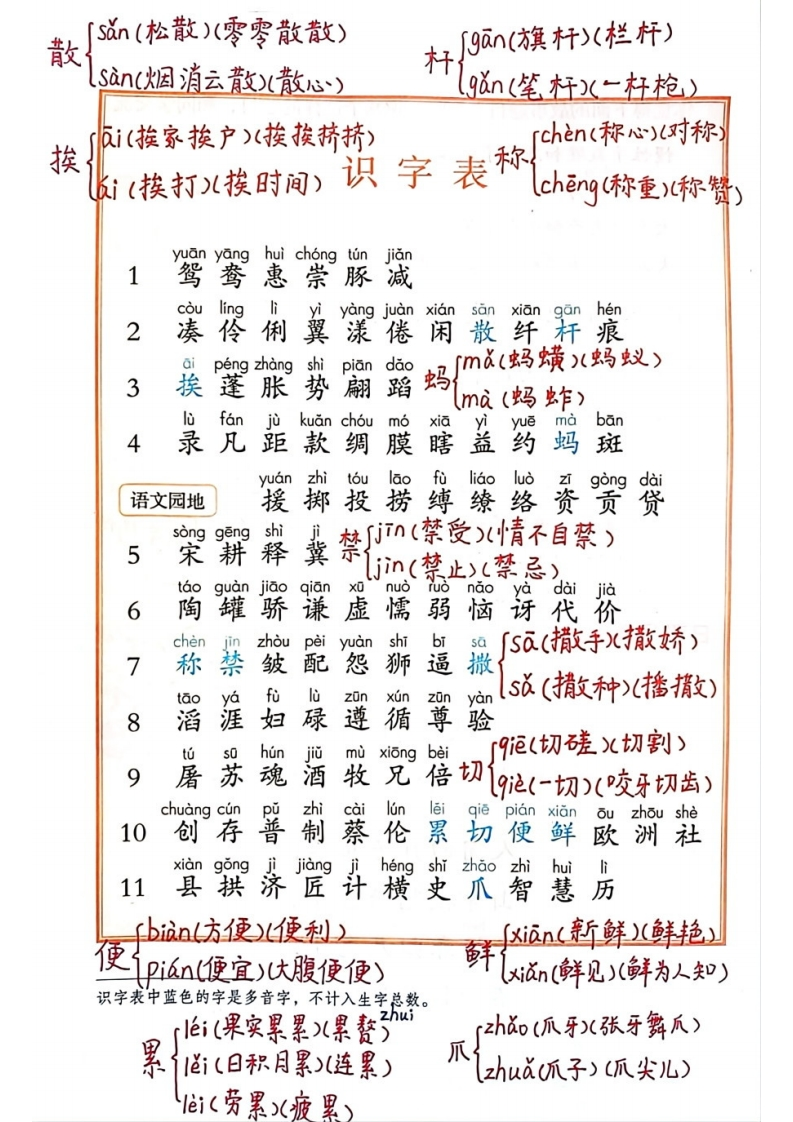 散 sǎn(松散)(零零散散)
sàn(烟消云散)(散心)
杆 gān(旗杆)(栏杆)
gǎn(笔杆)(一杆枪)
挨 āi(挨家挨户)(挨挨挤挤)
ái(挨打)(挨时间)
识字表
称 chèn(称心)(对称)
chēng(称重)(称赞)
yuān yāng huì chóng tún jiǎn
1 鸳鸯惠崇豚减
còu líng lì yì yàng juàn xián sǎn xiān gān hén
2 凑伶俐翼漾倦闲散纤杆痕
āi péng zhàng shì piān dǎo
3 挨蓬胀势翩蹈
蚂 mǎ(蚂蟥)(蚂蚁)
mà(蚂蚱)
lù fán jù kuǎn chóu mó xiā yì yuē mà bān
4 录凡距款绸膜瞎益约蚂斑
yuán zhì tóu lāo fù liáo luò zī gòng dài
语文园地 援掷投捞缚缭络资贡贷
sòng gēng shì jì
5 宋耕释冀
禁 jīn(禁受)(情不自禁)
jìn(禁止)(禁忌)
táo guàn jiāo qiān xū nuò ruò nǎo yà dài jià
6 陶罐骄谦虚懦弱恼讶代价
chèn jīn zhòu pèi yuàn shī bī sā
7 称禁皱配怨狮逼撒
sā(撒手)(撒娇)
sǎ(撒种)(播撒)
tāo yá fù lù zūn xún zūn yàn
8 滔涯妇碌遵循尊验
tú sū hún jiǔ mù xiōng bèi
9 屠苏魂酒牧兄倍
切 qiē(切磋)(切割)
qiè(一切)(咬牙切齿)
chuàng cún pǔ zhì cài lún lěi qiē pián xiān ōu zhōu shè
10 创存普制蔡伦累切便鲜欧洲社
xiàn gǒng jì jiàng jì héng shǐ zhǎo zhì huì lì
11 县拱济匠计横史爪智慧历
便 biàn(方便)(便利)
pián(便宜)(大腹便便)
鲜 xiān(新鲜)(鲜艳)
xiǎn(鲜见)(鲜为人知)
识字表中蓝色的字是多音字，不计入生字总数。
zhui
累 léi(果实累累)(累赘)
lěi(日积月累)(连累)
lèi(劳累)(疲累)
爪 zhǎo(爪牙)(张牙舞爪)
zhuǎ(爪子)(爪尖儿)